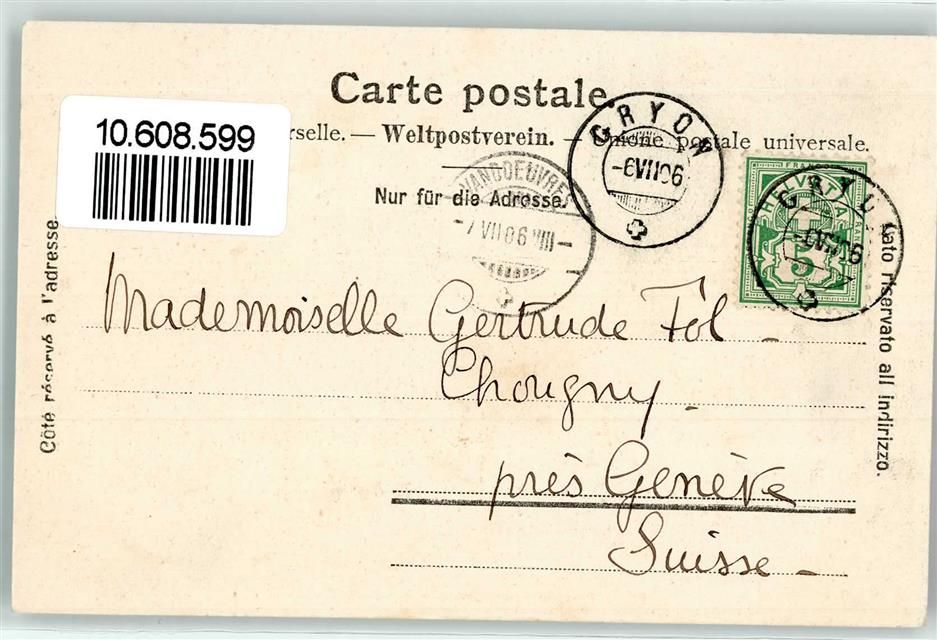 Carte postale.
10.608.599
rselle. — Weltpostverein. — Unione postale universale.
Nur für die Adresse.
GRYON
-6VII06
VANDOEUVRES
-7 VII 06 VIII-
FRANCO
HELVETIA
5
GRYON
-6VII06
Côté réservé à l'adresse
Lato riservato all indirizzo.
Mademoiselle Gertrude Fol -
Chougny.
près Genève
Suisse -